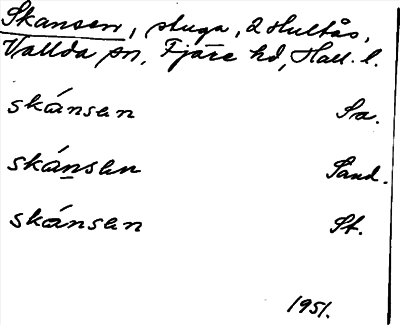 Skansen, stuga, 2 Hultås,
Vallda sn, Fjäre hd, Hall. l.
skánsen Sa.
skánsen Sand.
skánsen St.
1951.